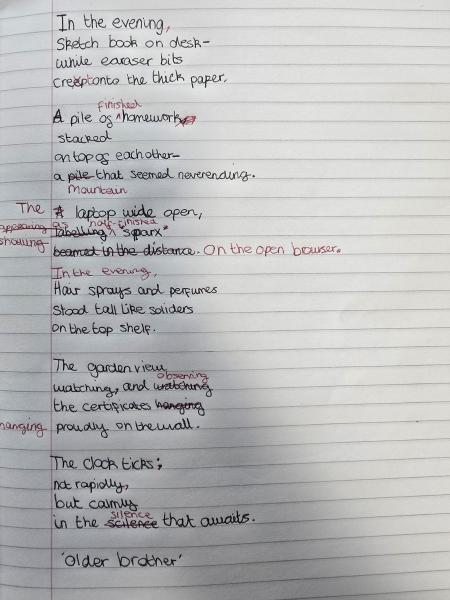 In the evening,
Sketch book on desk-
while earaser bits
creept onto the thick paper.
finished
A pile og ^ homework
stacked
on top og each other-
a pile that seemed neverending.
Mountain
The A laptop wide open,
appearing as half-finished
labelling ^ "sparx"
showing
beamed in the distance. On the open browser.
In the evening,
Hair sprays and perfumes
Stood tall like soliders
on the top shelf.
The garden view
observing
watching, and watching
the certificates hanging
hanging proudly on the wall.
The clock ticks;
not rapidly,
but calmly
silence
in the scilence that awaits.
'older brother'